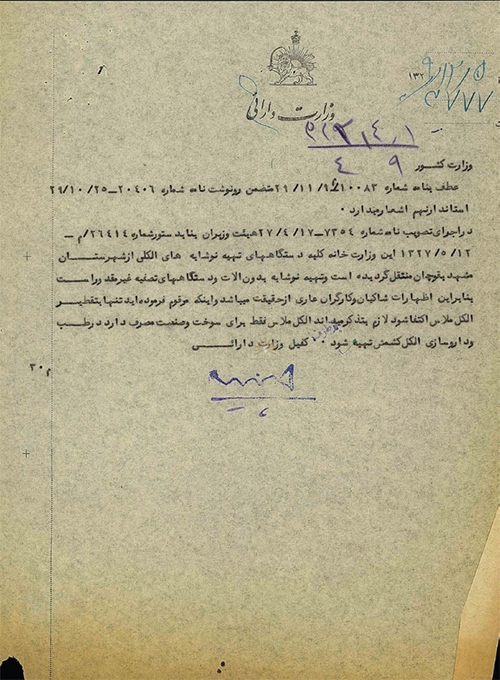 وزارت دارائی
وزارت کشور
عطف بنامه شماره ۱۰۰۸۳ ۲۹/۱۱/۹ متضمن رونوشت نامه شماره ۲۰۴۰۶–۲۹/۱۰/۲۵
استاندار نهم اشعار میدارد ۰
در اجرای تصویب نامه شماره ۷۳۵۴–۲۷/۴/۱۷ هیئت وزیران بنا بدستور شماره ۲۶۴۱۴/م–
۱۳۲۷/۵/۱۲ این وزارت خانه کلیه دستگاههای تهیه نوشابه های الکلی از شهرستان
مشهد بقوچان منتقل گردیده است و تهیه نوشابه بدون الات و دستگاههای تصفیه غیر مقدور است
بنابراین اظهارات شاکیان و کارگران عاری از حقیقت میباشد و اینکه مرقوم فرموده اید تنها بتقطیر
الکل ملاس اکتفا شود لازم بتذکر میداند الکل ملاس فقط برای سوخت و صنعت مصرف دارد در طب
و داروسازی الکل کشمش تهیه شود ۰ کفیل وزارت دارائی
م ۳۰